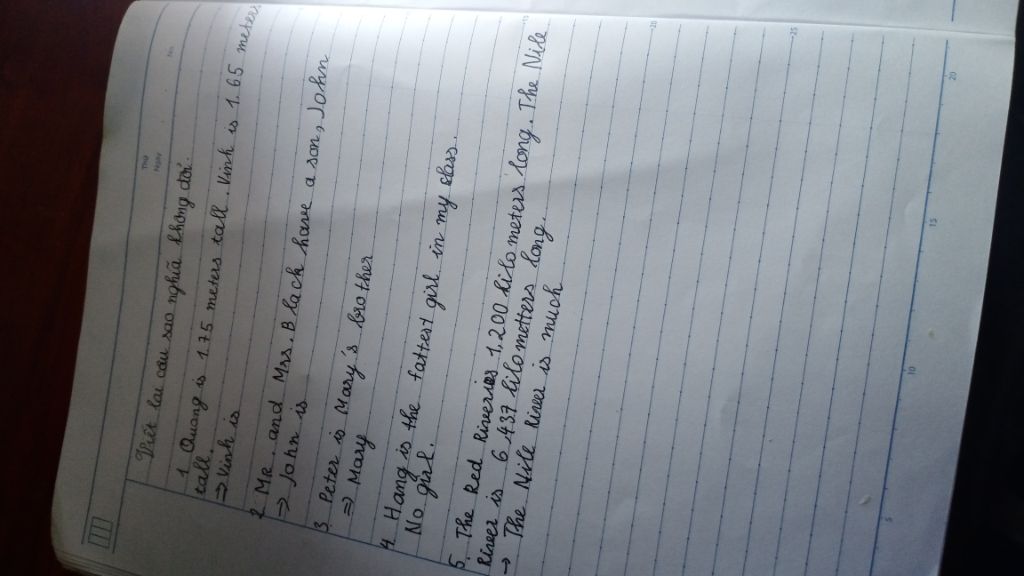 THỨ
NGÀY
No.
Viết lại câu sao nghĩa không đổi.
1 Quang is 1.75 meters tall. Vinh is 1.65 meters
tall.
⇒ Vinh is
2 Mr. and Mrs. Black have a son, John
⇒ John is
3 Peter is Mary's brother
⇒ Mary
4 Hang is the fattest girl in my class.
No girl.
5. The Red River is 1,200 kilometers long. The Nile
River is 6.437 kilometters long.
→ The Nile River is much
5
10
15
20
15
20
25